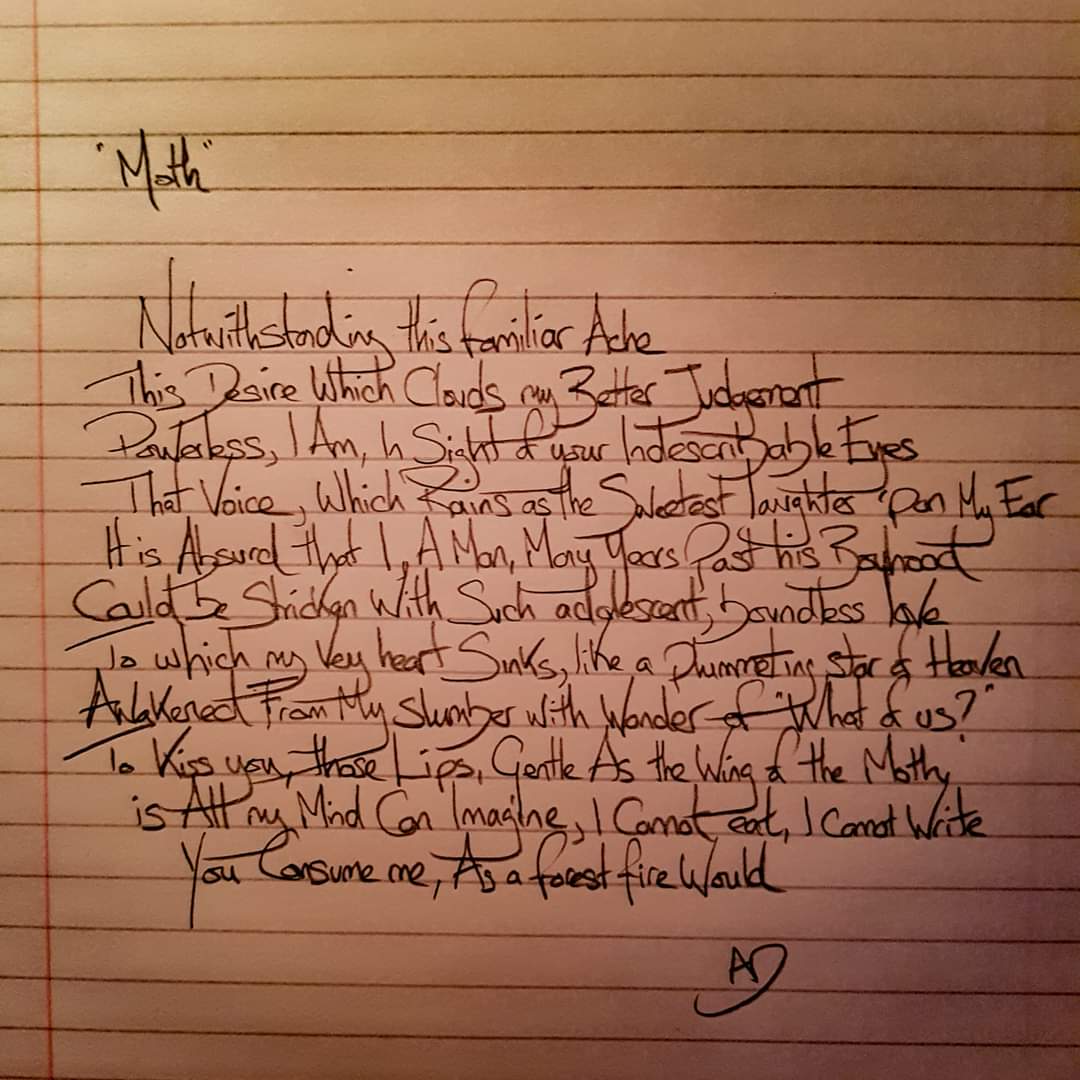 "Moth"
Notwithstanding this familiar Ache
This Desire Which Clouds my Better Judgement
Powerless, I Am, In Sight of your Indescribable Eyes
That Voice, Which Rains as the Sweetest laughter 'pon My Ear
It is Absurd that I, A Man, Many Years Past his Boyhood
Could be Stricken With Such adolescent, boundless love
To which my Very heart Sinks, like a Plummeting star of Heaven
Awakened From My slumber with Wonder of "What of us?"
To Kiss you, those Lips, Gentle As the Wing of the Moth,
is All my Mind Can Imagine, I Cannot eat, I Cannot Write
You Consume me, As a forest fire Would
AD